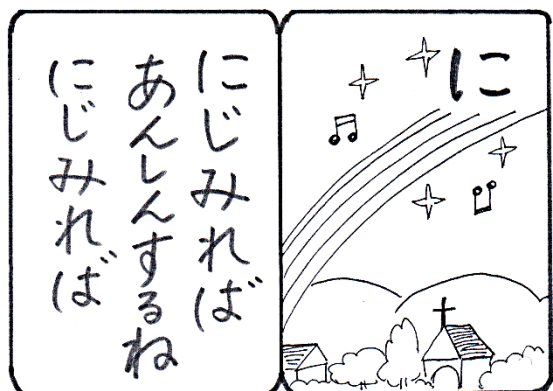 に
にじみれば
あんしんするね
にじみれば